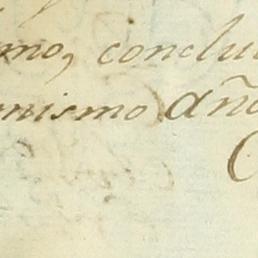 mo, conclui
mismo año